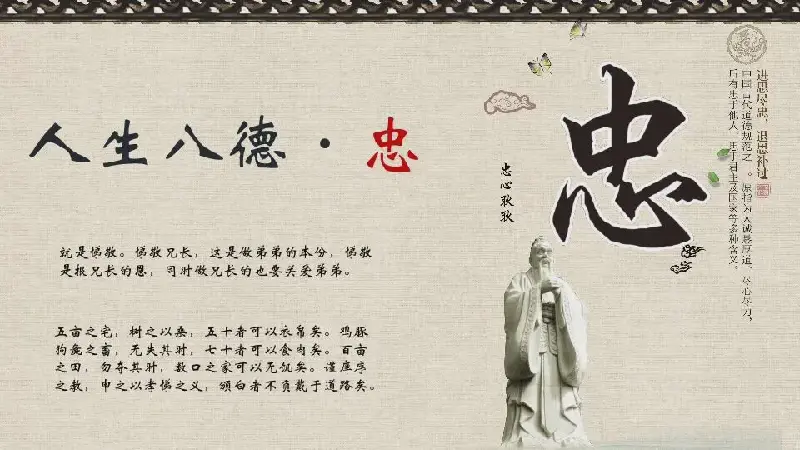 人生八德·忠
就是悌敬。悌敬兄长，这是做弟弟的本份，悌敬
是报兄长的恩，同时做兄长的也要关爱弟弟。
五亩之宅，树之以桑，五十者可以衣帛矣。鸡豚
狗彘之畜，无失其时，七十者可以食肉矣。百亩
之田，勿夺其时，数口之家可以无饥矣。谨庠序
之教，申之以孝悌之义，颁白者不负戴于道路矣。
忠心耿耿
忠
进思尽忠，退思补过
中国古代道德规范之一。原指为人诚恳厚道、尽心尽力，
后有忠于他人、忠于君主及国家等多种含义。